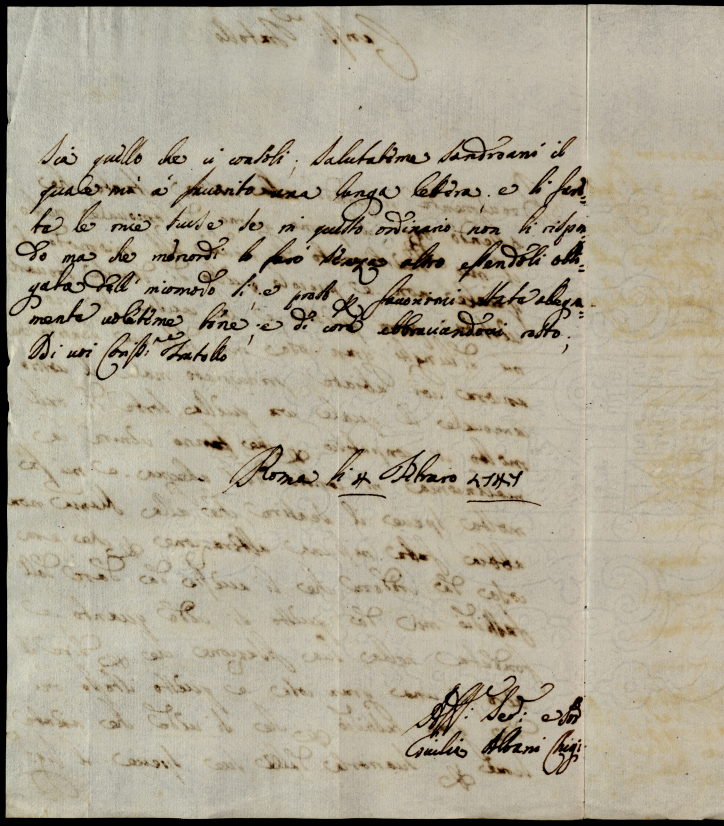 Sia quello che ci consoli; Salutateme Sandroani il
quale mi à favorito una lunga letera, e li fara-
ta le mie scuse se in questo ordinario non li rispon
do ma che menordi lo farò senza altro essendoli obli-
gata dell' incomodo si, e favorirmi state alegra-
mente voleteme bene, e di core abbraciandovi resto;
Di voi Cariss.mo Fratello
Roma li 4 Febraro 1747
Aff.ma Sed.ma e Sor
Giulia Albani Chigi